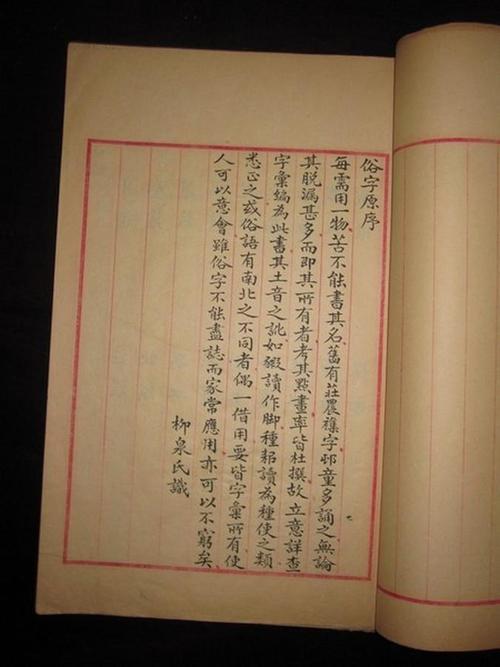 俗字原序
每需用一物苦不能書其名舊有莊農襍字邨童多誦之無論
其脱漏甚多而即其所有者考其點畫率皆杜撰故立意詳查
字彙編為此書其土音之訛如豭讀作脚種耜讀為種使之類
悉正之或俗語有南北之不同者偶一借用要皆字彙所有使
人可以意會雖俗字不能盡誌而家常應用亦可以不窮矣
柳泉氏識